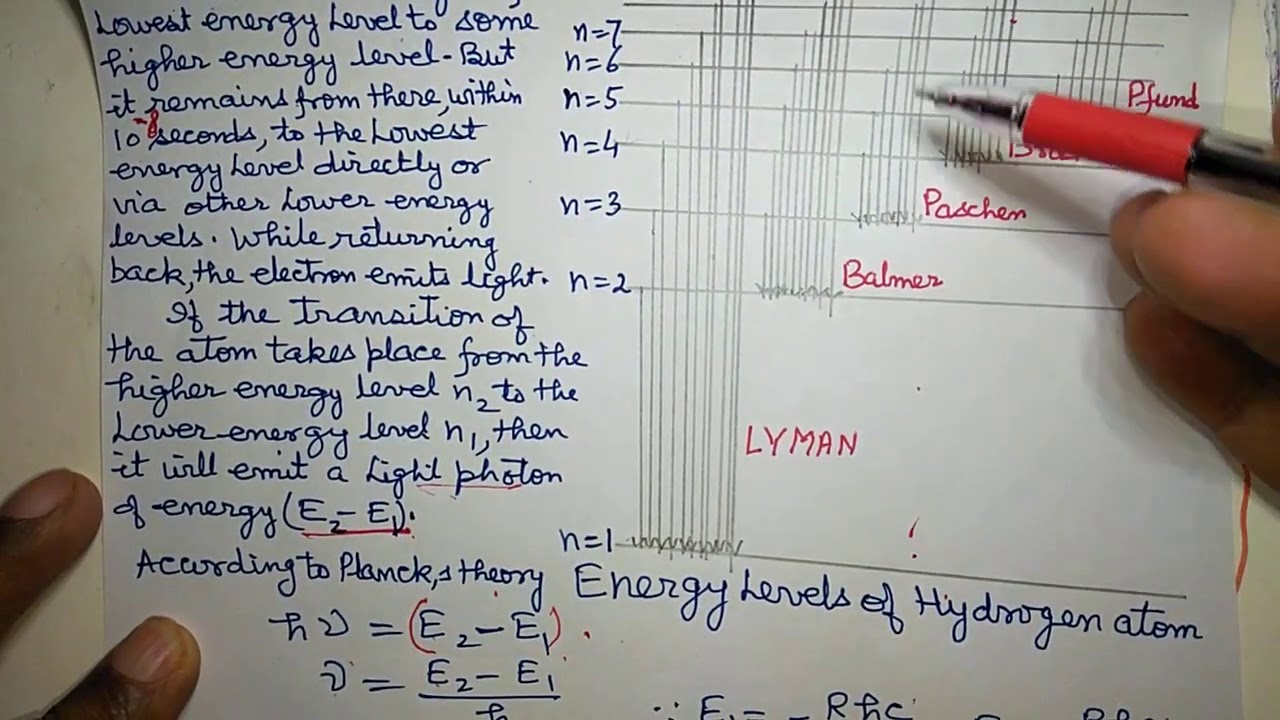 Lowest energy Level to some
higher energy level. But
it remains from there, within
10⁻⁸ seconds, to the Lowest
energy Level directly or
via other Lower energy
levels. While returning
back, the electron emits light.
If the transition of
the atom takes place from the
higher energy level n₂ to the
Lower energy level n₁, then
it will emit a Light photon
of energy (E₂ - E₁).
According to Planck,s theory
hν = (E₂ - E₁).
ν = E₂ - E₁
h
n=7
n=6
n=5
n=4
n=3
n=2
n=1
Pfund
Paschen
Balmer
LYMAN
Energy Levels of Hydrogen atom
∵ E₁ = - Rhc